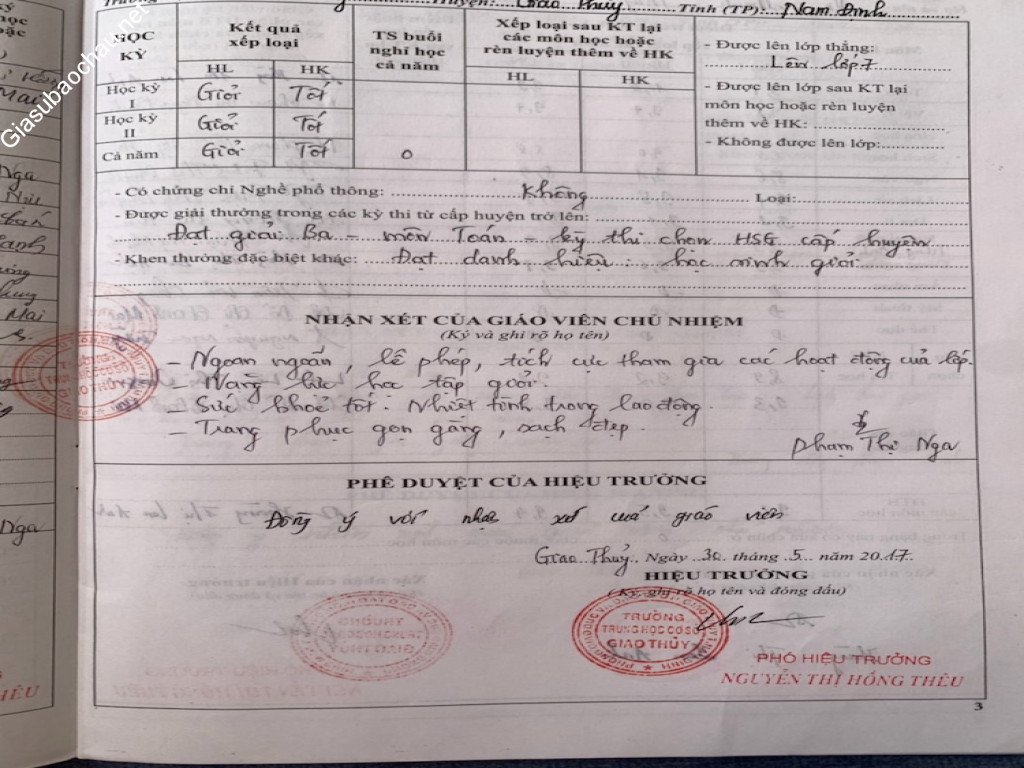 Huyện: Giao Thủy Tỉnh (TP): Nam Định
HỌC KỲ
Kết quả xếp loại
TS buổi nghỉ học cả năm
Xếp loại sau KT lại các môn học hoặc rèn luyện thêm về HK
HL HK HL HK
Học kỳ I Giỏi Tốt
Học kỳ II Giỏi Tốt
Cả năm Giỏi Tốt 0
- Được lên lớp thẳng:
Lên lớp 7
- Được lên lớp sau KT lại
môn học hoặc rèn luyện
thêm về HK:
- Không được lên lớp:
- Có chứng chỉ Nghề phổ thông: Không Loại:
- Được giải thưởng trong các kỳ thi từ cấp huyện trở lên:
Đạt giải Ba - môn Toán - kỳ thi chọn HSG cấp huyện
- Khen thưởng đặc biệt khác: Đạt danh hiệu: học sinh giỏi
NHẬN XÉT CỦA GIÁO VIÊN CHỦ NHIỆM
(Ký và ghi rõ họ tên)
- Ngoan ngoãn, lễ phép, tích cực tham gia các hoạt động của lớp.
- Năng lực học tập giỏi.
- Sức khoẻ tốt. Nhiệt tình trong lao động.
- Trang phục gọn gàng, sạch đẹp.
Phạm Thị Nga
PHÊ DUYỆT CỦA HIỆU TRƯỞNG
Đồng ý với nhận xét của giáo viên
Giao Thuỷ, Ngày 30 tháng 5 năm 2017
HIỆU TRƯỞNG
(Ký, ghi rõ họ tên và đóng dấu)
TRƯỜNG
TRUNG HỌC CƠ SỞ
GIAO THỦY
PHÓ HIỆU TRƯỞNG
NGUYỄN THỊ HỒNG THÊU
3
Giasubaochau.net
Nga
Mai
Nga